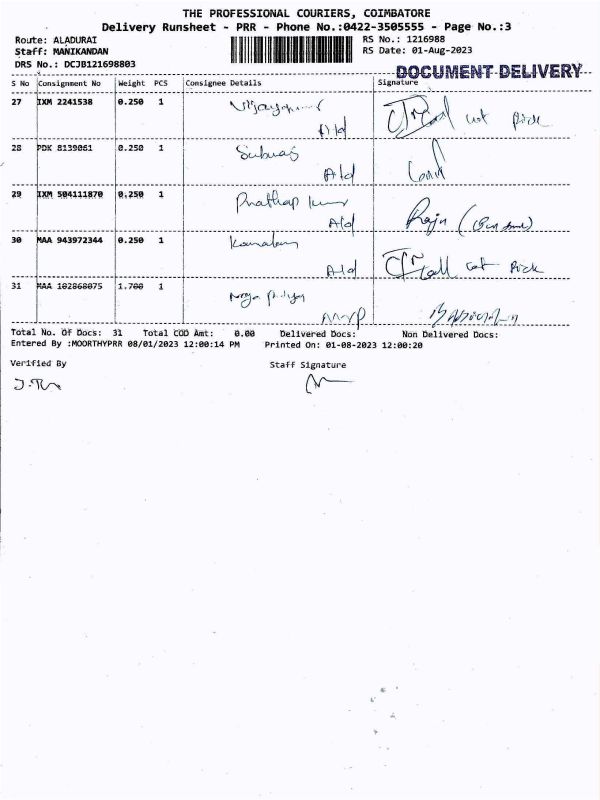 THE PROFESSIONAL COURIERS, COIMBATORE
Delivery Runsheet - PRR - Phone No.:0422-3505555 - Page No.:3
Route: ALADURAI RS No.: 1216988
Staff: MANIKANDAN RS Date: 01-Aug-2023
DRS No.: DCJB121698803
DOCUMENT DELIVERY
S No Consignment No Weight PCS Consignee Details Signature
27 IXM 2241538 0.250 1 Vijaykumar
Ald
28 PDK 8139061 0.250 1 Subuas
Ald
29 IXM 504111870 0.250 1 Prathap kumar Raju
Ald
30 MAA 943972344 0.250 1 Call
Ald
31 MAA 102868075 1.700 1
Total No. Of Docs: 31 Total COD Amt: 0.00 Delivered Docs: Non Delivered Docs:
Entered By :MOORTHYPRR 08/01/2023 12:00:14 PM Printed On: 01-08-2023 12:00:20
Verified By Staff Signature